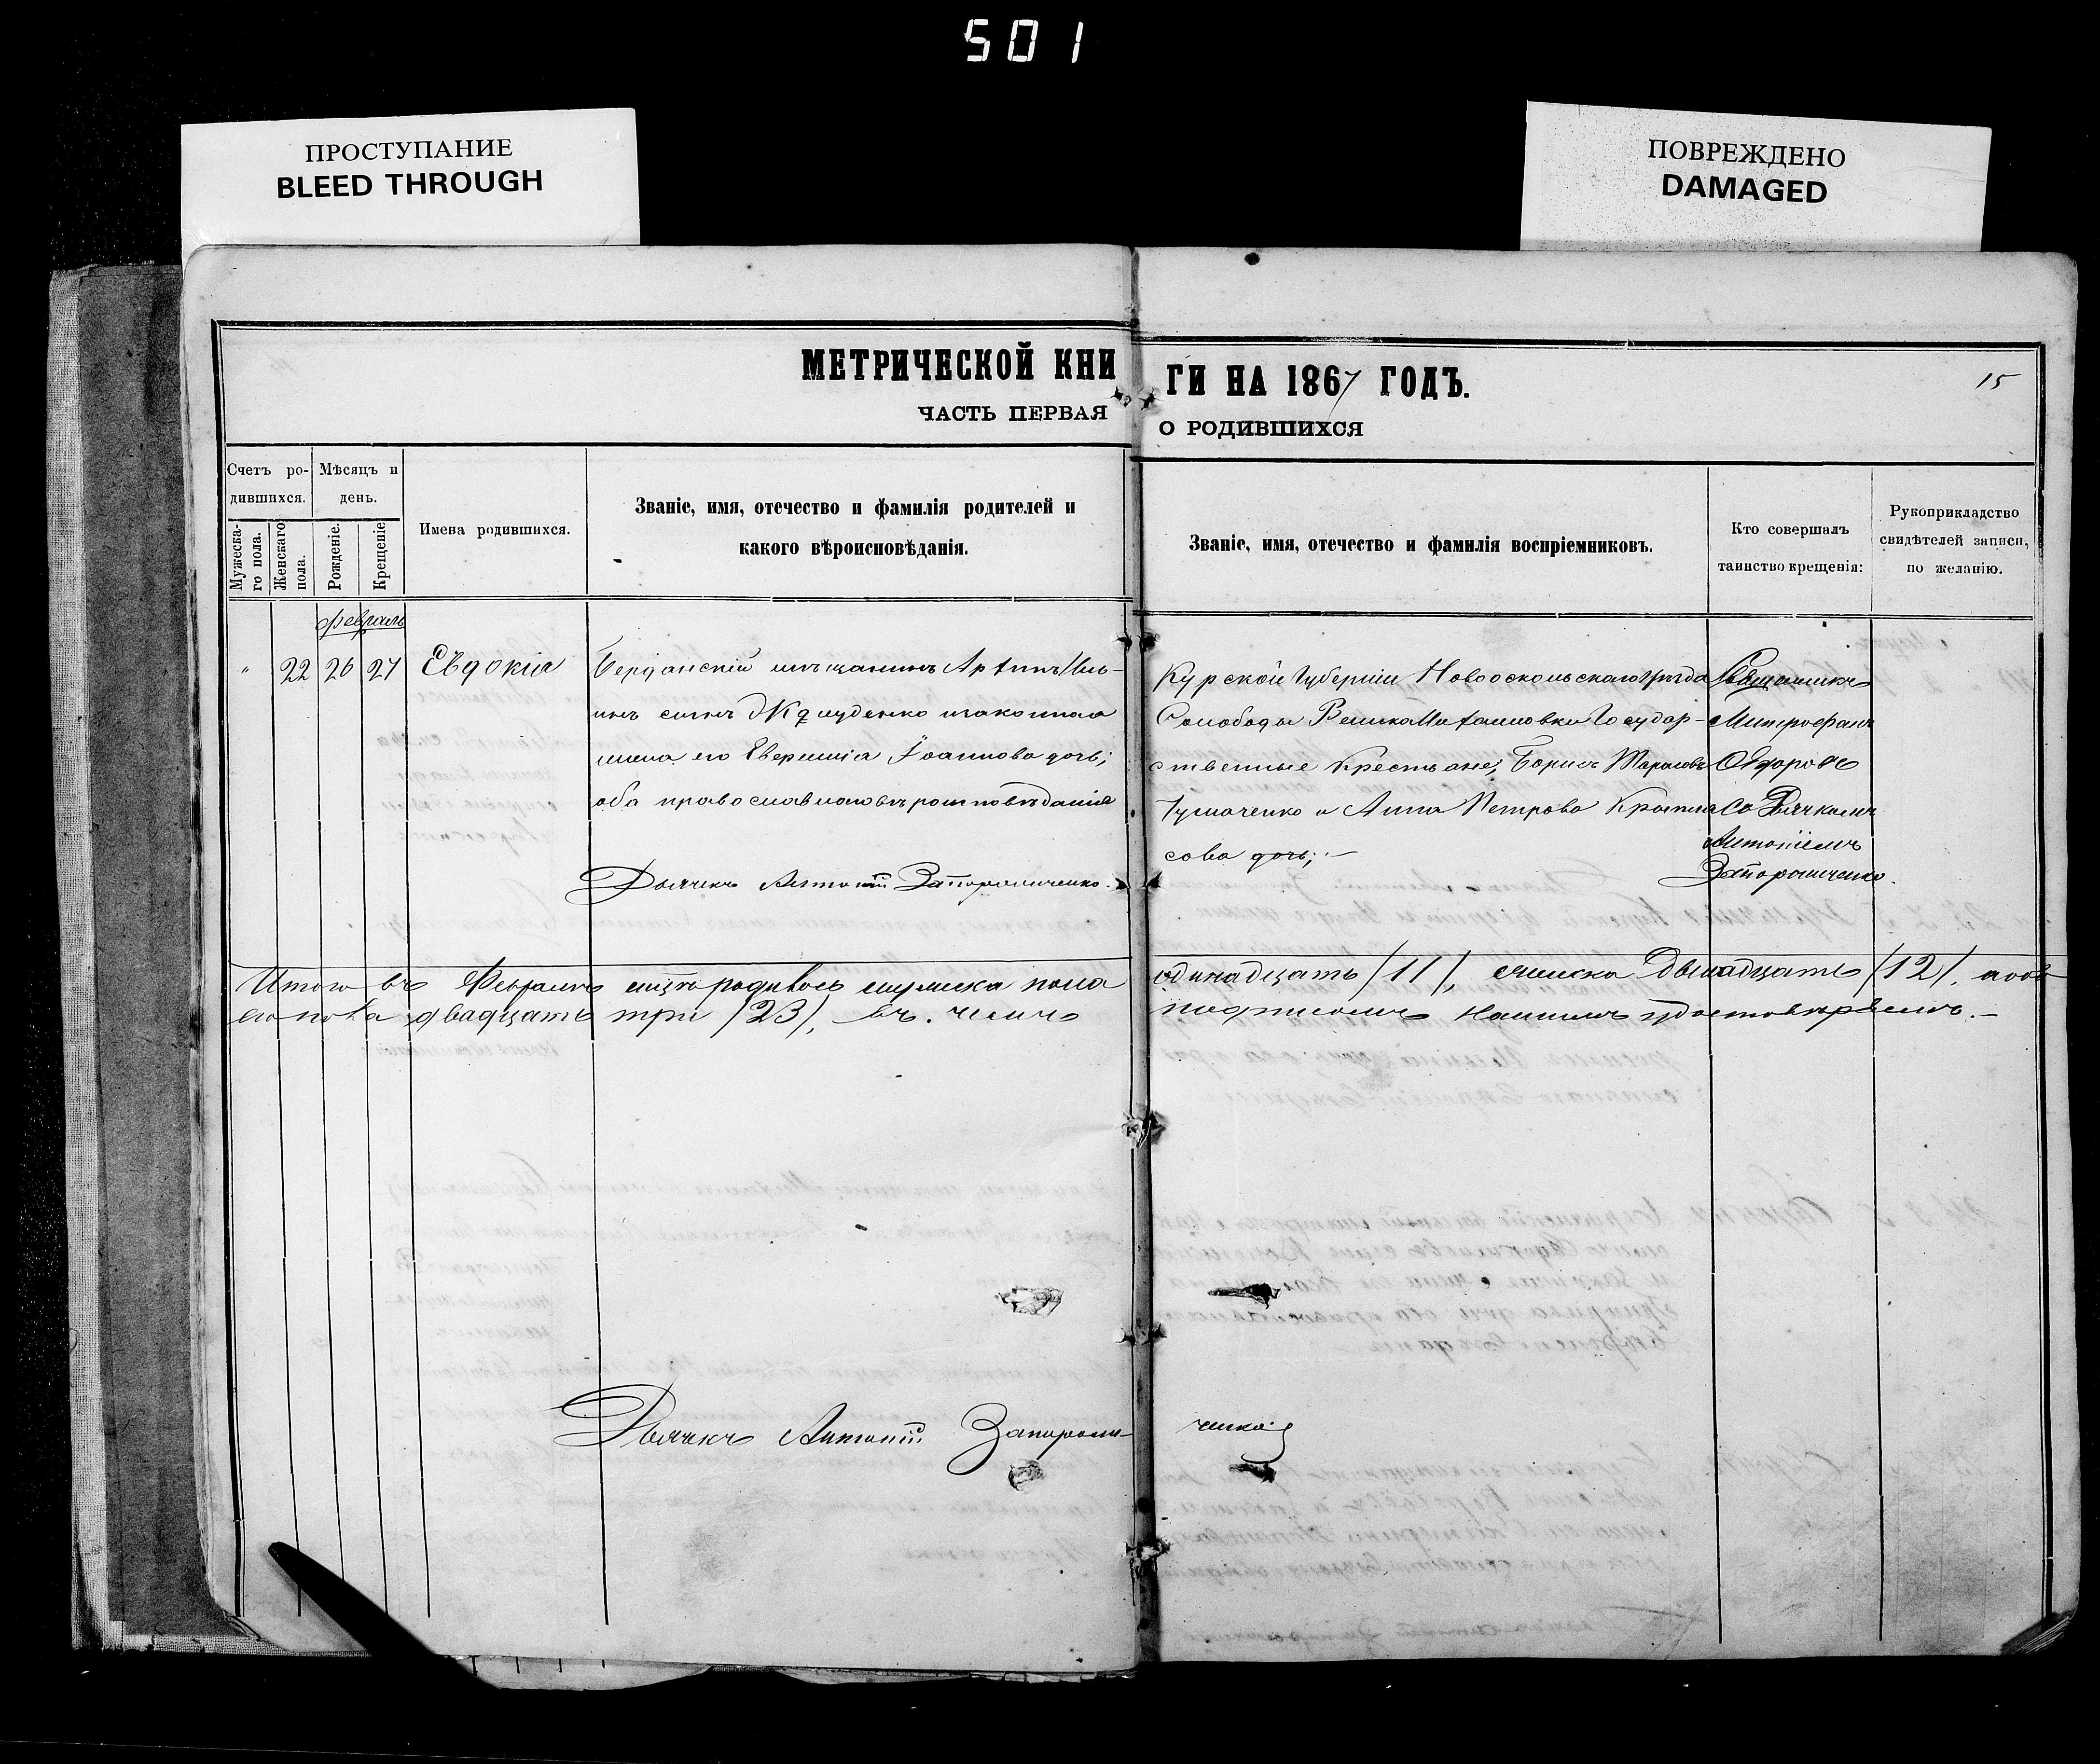 501
ПРОСТУПАНИЕ
BLEED THROUGH
ПОВРЕЖДЕНО
DAMAGED
МЕТРИЧЕСКОЙ КНИ
ГИ НА 1867 ГОДЪ.
15
ЧАСТЬ ПЕРВАЯ
О РОДИВШИХСЯ
Счетъ ро-
дившихся.
Мѣсяцъ и
день.
Мужеска-
го пола.
Женскаго
пола.
Рожденіе.
Крещеніе
Имена родившихся.
Званіе, имя, отечество и фамилія родителей и
какого вѣроисповѣданія.
Званіе, имя, отечество и фамилія воспріемниковъ.
Кто совершалъ
таинство крещенія:
Рукоприкладство
свидѣтелей записи,
по желанію.
Февраль
" 22 26 27 Евдокія
Бердянскій мѣщанинъ
инъ сынъ и законная
жена его Іоаннова дочь;
оба православнаго вѣроисповѣданія
Дьячекъ Антоній Запорожченко.
Курской Губерніи Новооскольскаго уѣзда
Слободы ВеликоМихайловки Государ-
ственные Крестьяне, Борисъ Тарасовъ
и Анна Петрова
сова дочь; —
Священникъ
Митрофанъ
Ѳедоровъ
Со Дьячкомъ
Антоніемъ
Запорожченко.
Итого въ Февралѣ мцѣ родилось мужеска пола
одинадцать /11/, женска двѣнадцать /12/,
двадцать три /23/, въ чемъ
подписомъ нашимъ удостовѣряемъ. —
Дьячекъ Антоній Запорож-
ченко